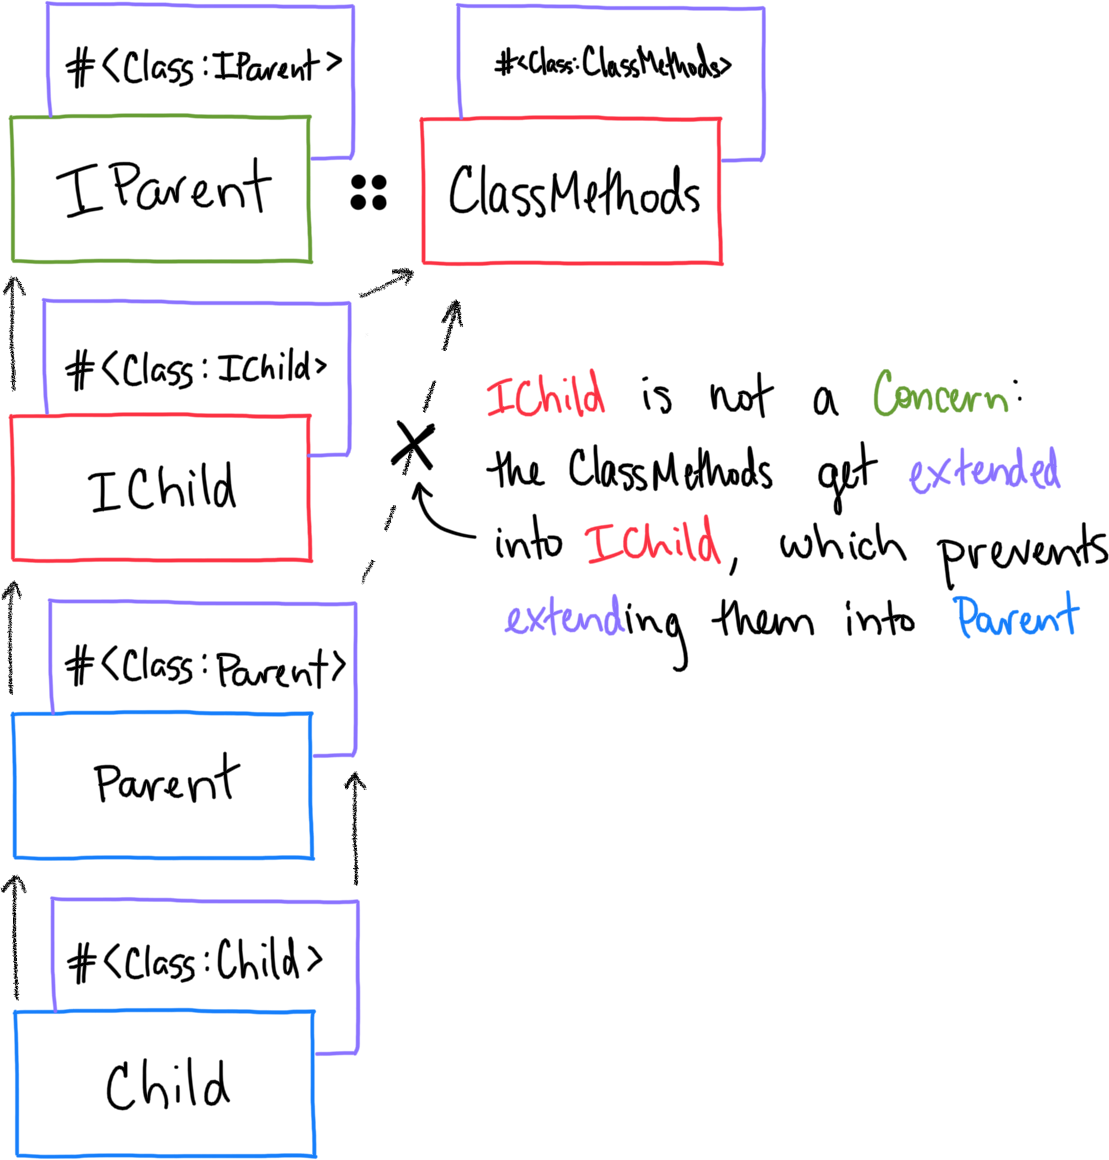 #<Class:IParent>
#<Class:ClassMethods>
IParent :: ClassMethods
#<Class:IChild>
IChild is not a Concern:
the ClassMethods get extended
IChild
into IChild, which prevents
extending them into Parent
#<Class:Parent>
Parent
#<Class:Child>
Child